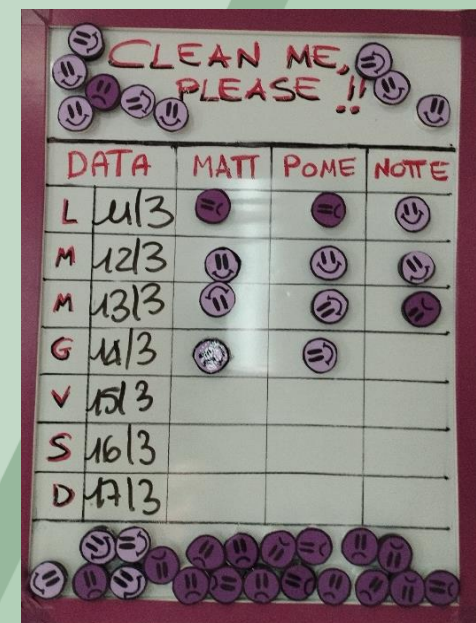 CLEAN ME,
PLEASE !!
DATA MATT POME NOTTE
L 11/3
M 12/3
M 13/3
G 14/3
V 15/3
S 16/3
D 17/3